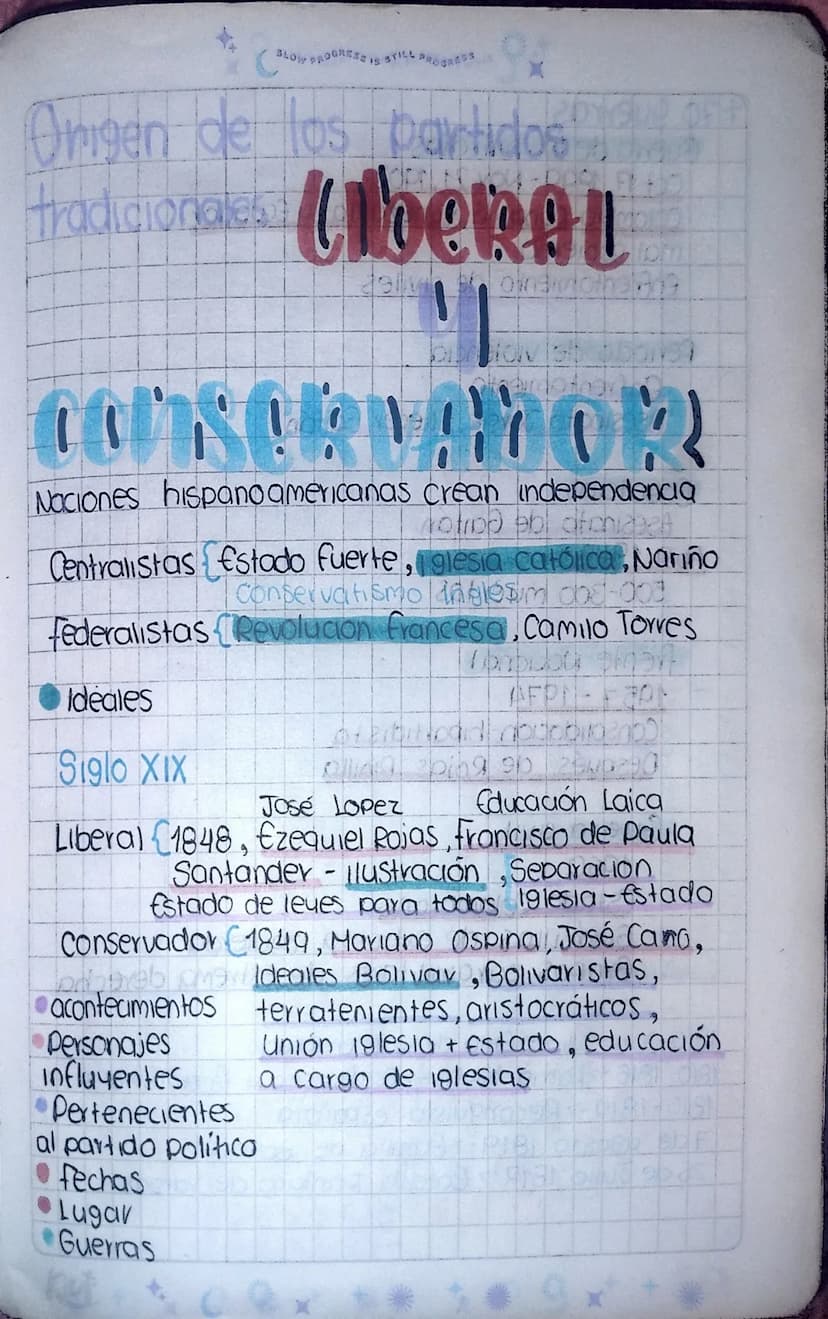 SLOW PROGRESS IS STILL PROGRESS
Origen de los partidos
tradicionales LIBERAL
Y
CONSERVADOR
Naciones hispanoamericanas crean independencia
Centralistas { Estado fuerte, Iglesia católica, Nariño
Conservatismo inglés
federalistas { Revolucion francesa, Camilo Torres
Ideales
Siglo XIX
José Lopez Educación Laica
Liberal { 1848, Ezequiel Rojas, francisco de Paula
Santander - ilustración, Separacion
Estado de leyes para todos Iglesia - Estado
Conservador { 1849, Mariano Ospina, José Caro,
Ideales Bolivar, Bolivaristas,
acontecimientos terratenientes, aristocráticos,
Personajes unión iglesia + Estado, educación
influyentes a cargo de iglesias
Pertenecientes
al partido político
fechas
Lugar
Guerras